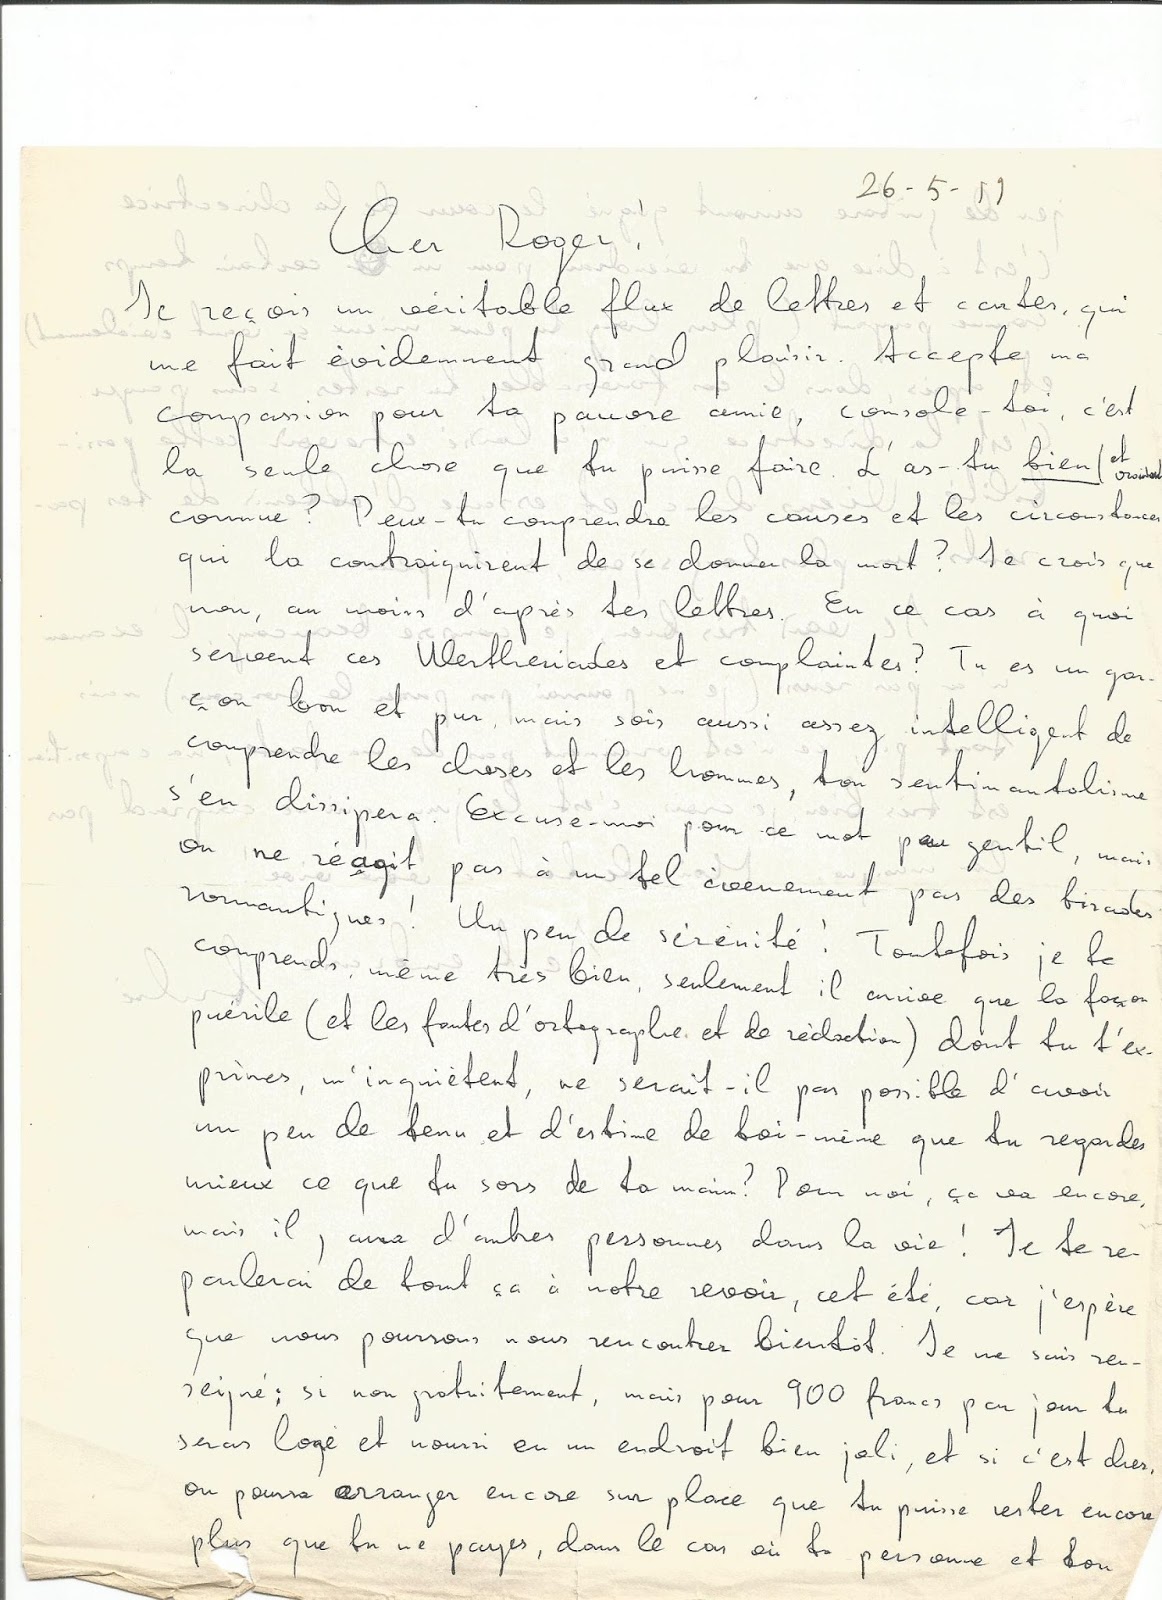 26-5-
Cher Roger,
Je reçois un véritable flux de lettres et cartes, qui
me fait évidemment grand plaisir. Accepte ma
compassion pour ta pauvre amie, console-toi, c'est
la seule chose que tu puisse faire. L'as-tu bien (et
connue? Peux-tu comprendre les causes et les circonstances
qui la contraignirent de se donner la mort? Je crois que
non, au moins d'après tes lettres. En ce cas à quoi
servent ces Wertheriades et complaintes? Tu es un gar-
çon bon et pur, mais sois aussi assez intelligent de
comprendre les choses et les hommes, ton sentimantalisme
s'en dissipera. Excuse-moi pour ce mot peu gentil, mais
on ne réagit pas à un tel évenement par des tirades
romantiques! Un peu de sérénité! Toutefois je te
comprends, même très bien, seulement il arrive que la façon
puérile (et les fautes d'ortographe et de rédaction) dont tu t'ex-
primes, m'inquiètent, ne serait-il pas possible d'avoir
un peu de tenu et d'estime de toi-même que tu regardes
mieux ce que tu sors de ta main? Pour moi, ça va encore,
mais il y aura d'autres personnes dans la vie! Je te re-
parlerai de tout ça à notre revoir, cet été, car j'espère
que nous pourrons nous rencontrer bientôt. Je me suis ren-
seigné; si non gratuitement, mais pour 900 francs par jour tu
seras logé et nourri en un endroit bien joli, et si c'est cher,
on pourra arranger encore sur place que tu puisse rester encore
plus que tu ne payes, dans le cas où ta personne et ton